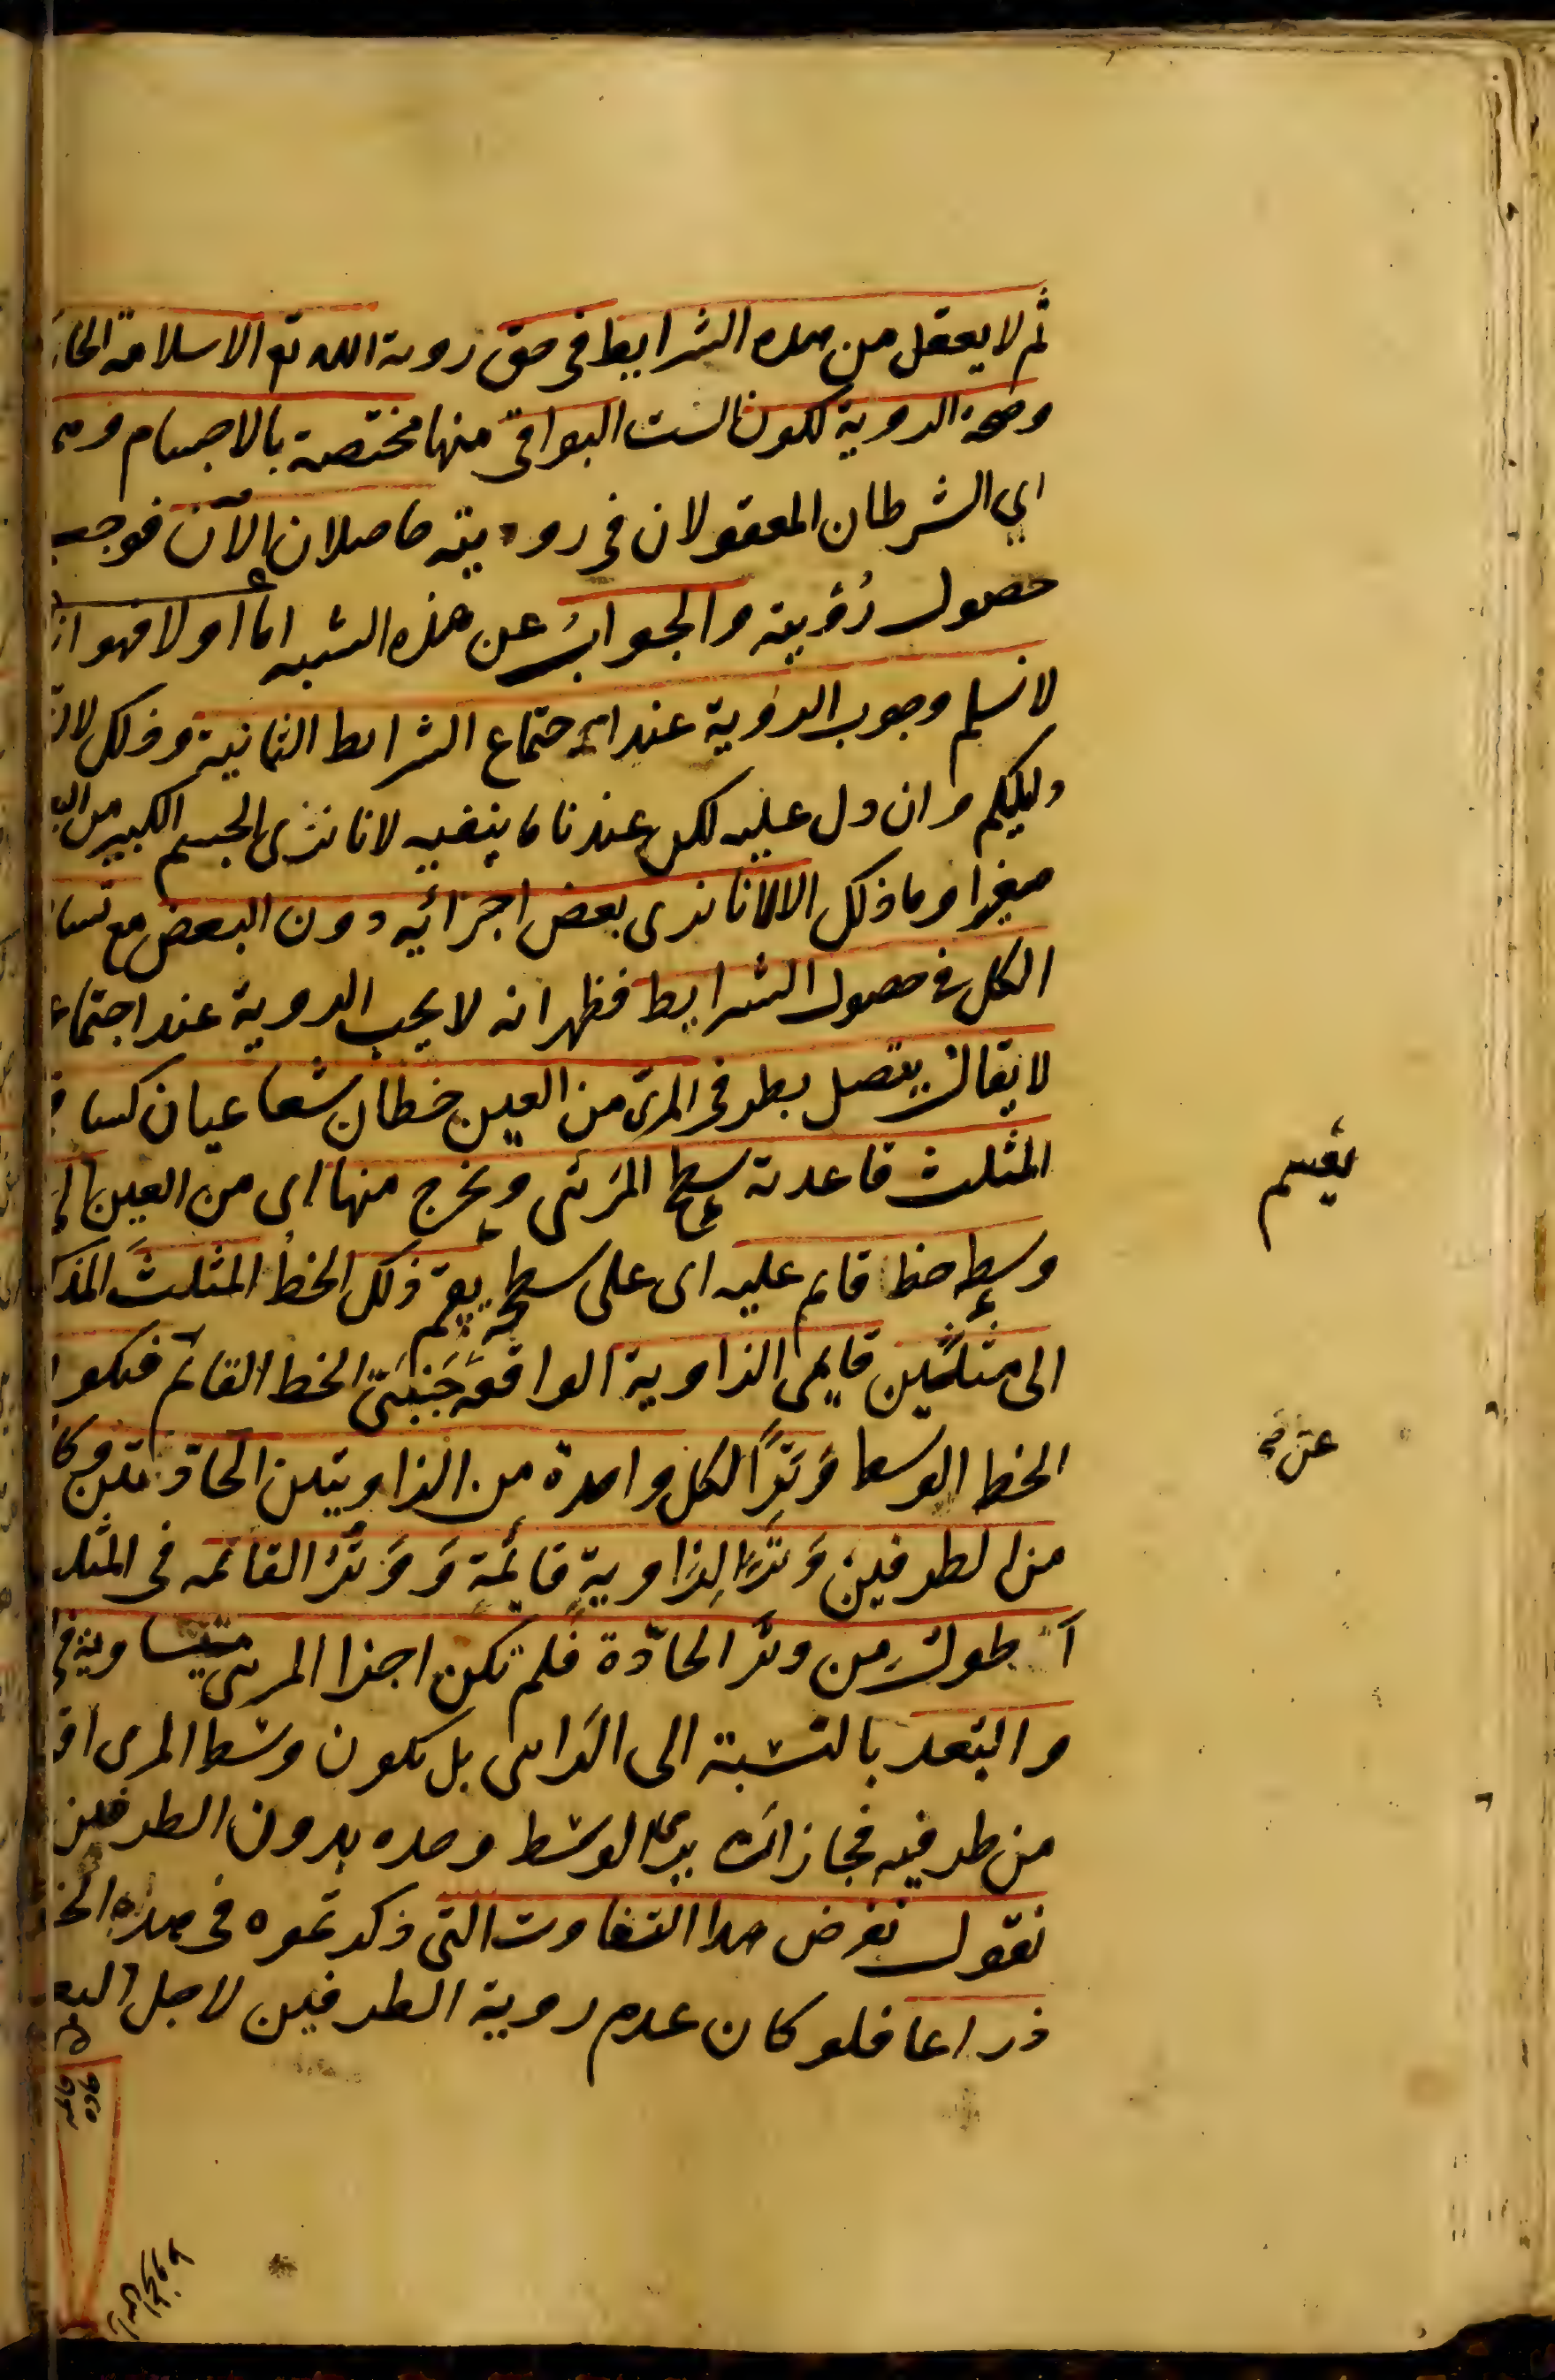 ثم لا يعقل من هذه الشرايط فى حق روية الله تع الا سلامة
وصحة الروية لكون الست البواقى منها مختصة بالاجسام
اي الشرطان المعقولان فى رويته حاصلان الآن فوجب
حصول رؤيته والجواب عن هذه الشبه اما اولا فهو
لا نسلم وجوب الروية عند اجتماع الشرايط الثمانية وذلك
دليلكم وان دل عليه لكن عندنا ما ينفيه لانا نرى الجسم الكبير من
صغيرا وما ذلك الا لانا نرى بعض اجزائه دون البعض مع
الكل فى حصول الشرايط فظهر انه لا يجب الروية عند
لا يقال يتصل بطرفى المرئى من العين خطان شعاعيان
المثلث قاعدته سطح المرئى ويخرج منها اى من العين الى
وسطه خط قايم عليه اى على سطحه يقسم ذلك الخط المثلث
الى مثلثين قايمى الزاوية الواقعة جنبتى الخط القائم
الخط الوسط وترا لكل واحدة من الزاويتين الحادتين
من الطرفين وترا لزاوية قائمة ووتر القائمة فى
اطول من وتر الحادة فلم تكن اجزا المرئى متساوية
والبعد بالنسبة الى الرائى بل يكون وسط المرئى
من طرفيه فجاز ان يرى الوسط وحده بدون الطرفين
نقول نفرض هذا التفاوت التى ذكرتموه فى هذه
ذراعا فلو كان عدم روية الطرفين لاجل
يقسم